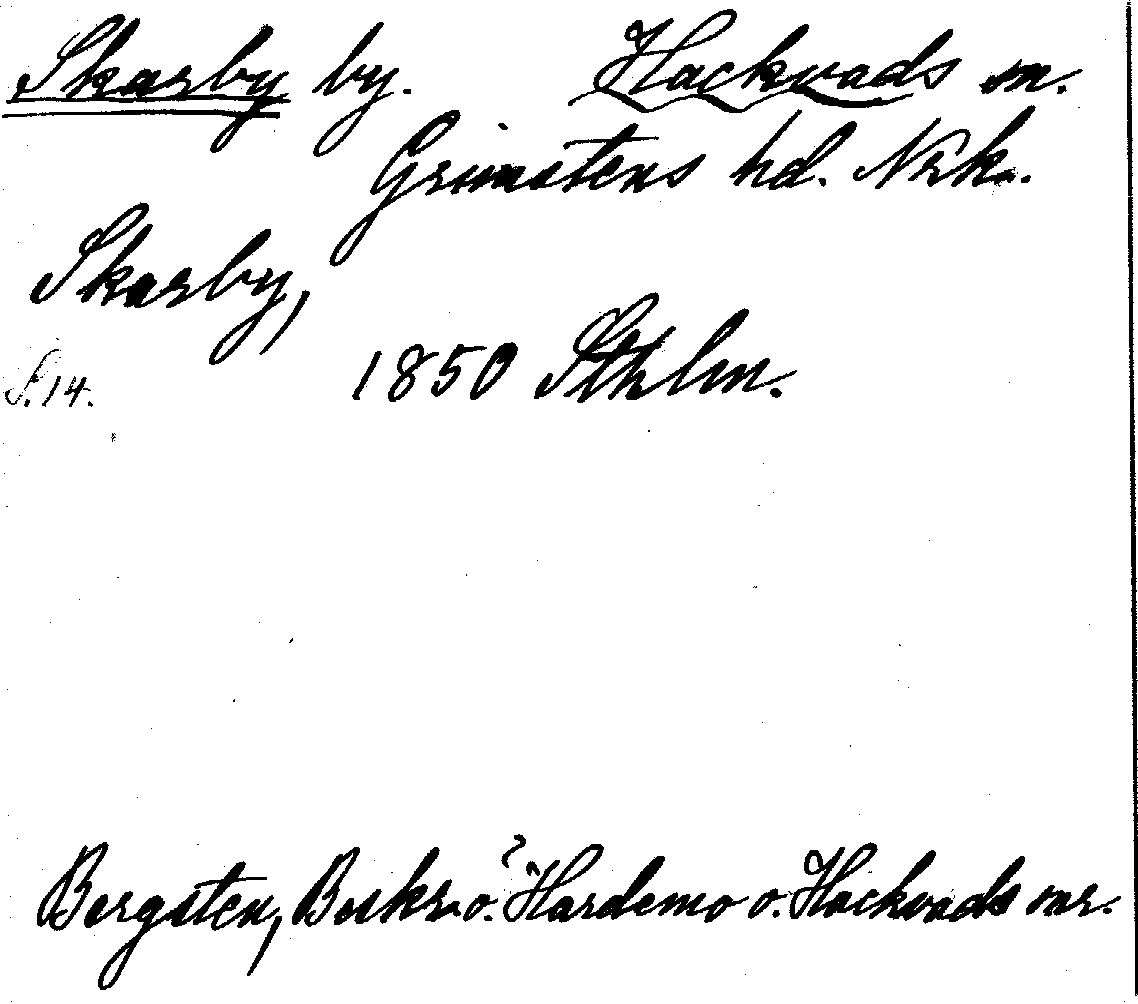 Skarby by. Hackvads sn.
Grimstens hd. Nrk.
Skarby,
S. 14. 1850 Sthlm.
Bergsten, Beskr. ö. Hardemo o. Hackvads snr.